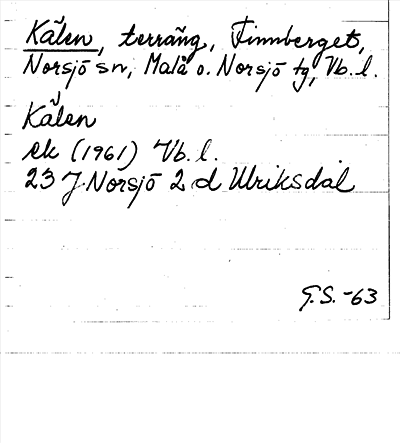 Kålen, terräng, Finnberget,
Norsjö sn, Malå o. Norsjö tg, Vb. l.
Kålen
ek (1961) Vb. l.
23 J Norsjö 2 d Ulriksdal
G.S. -63